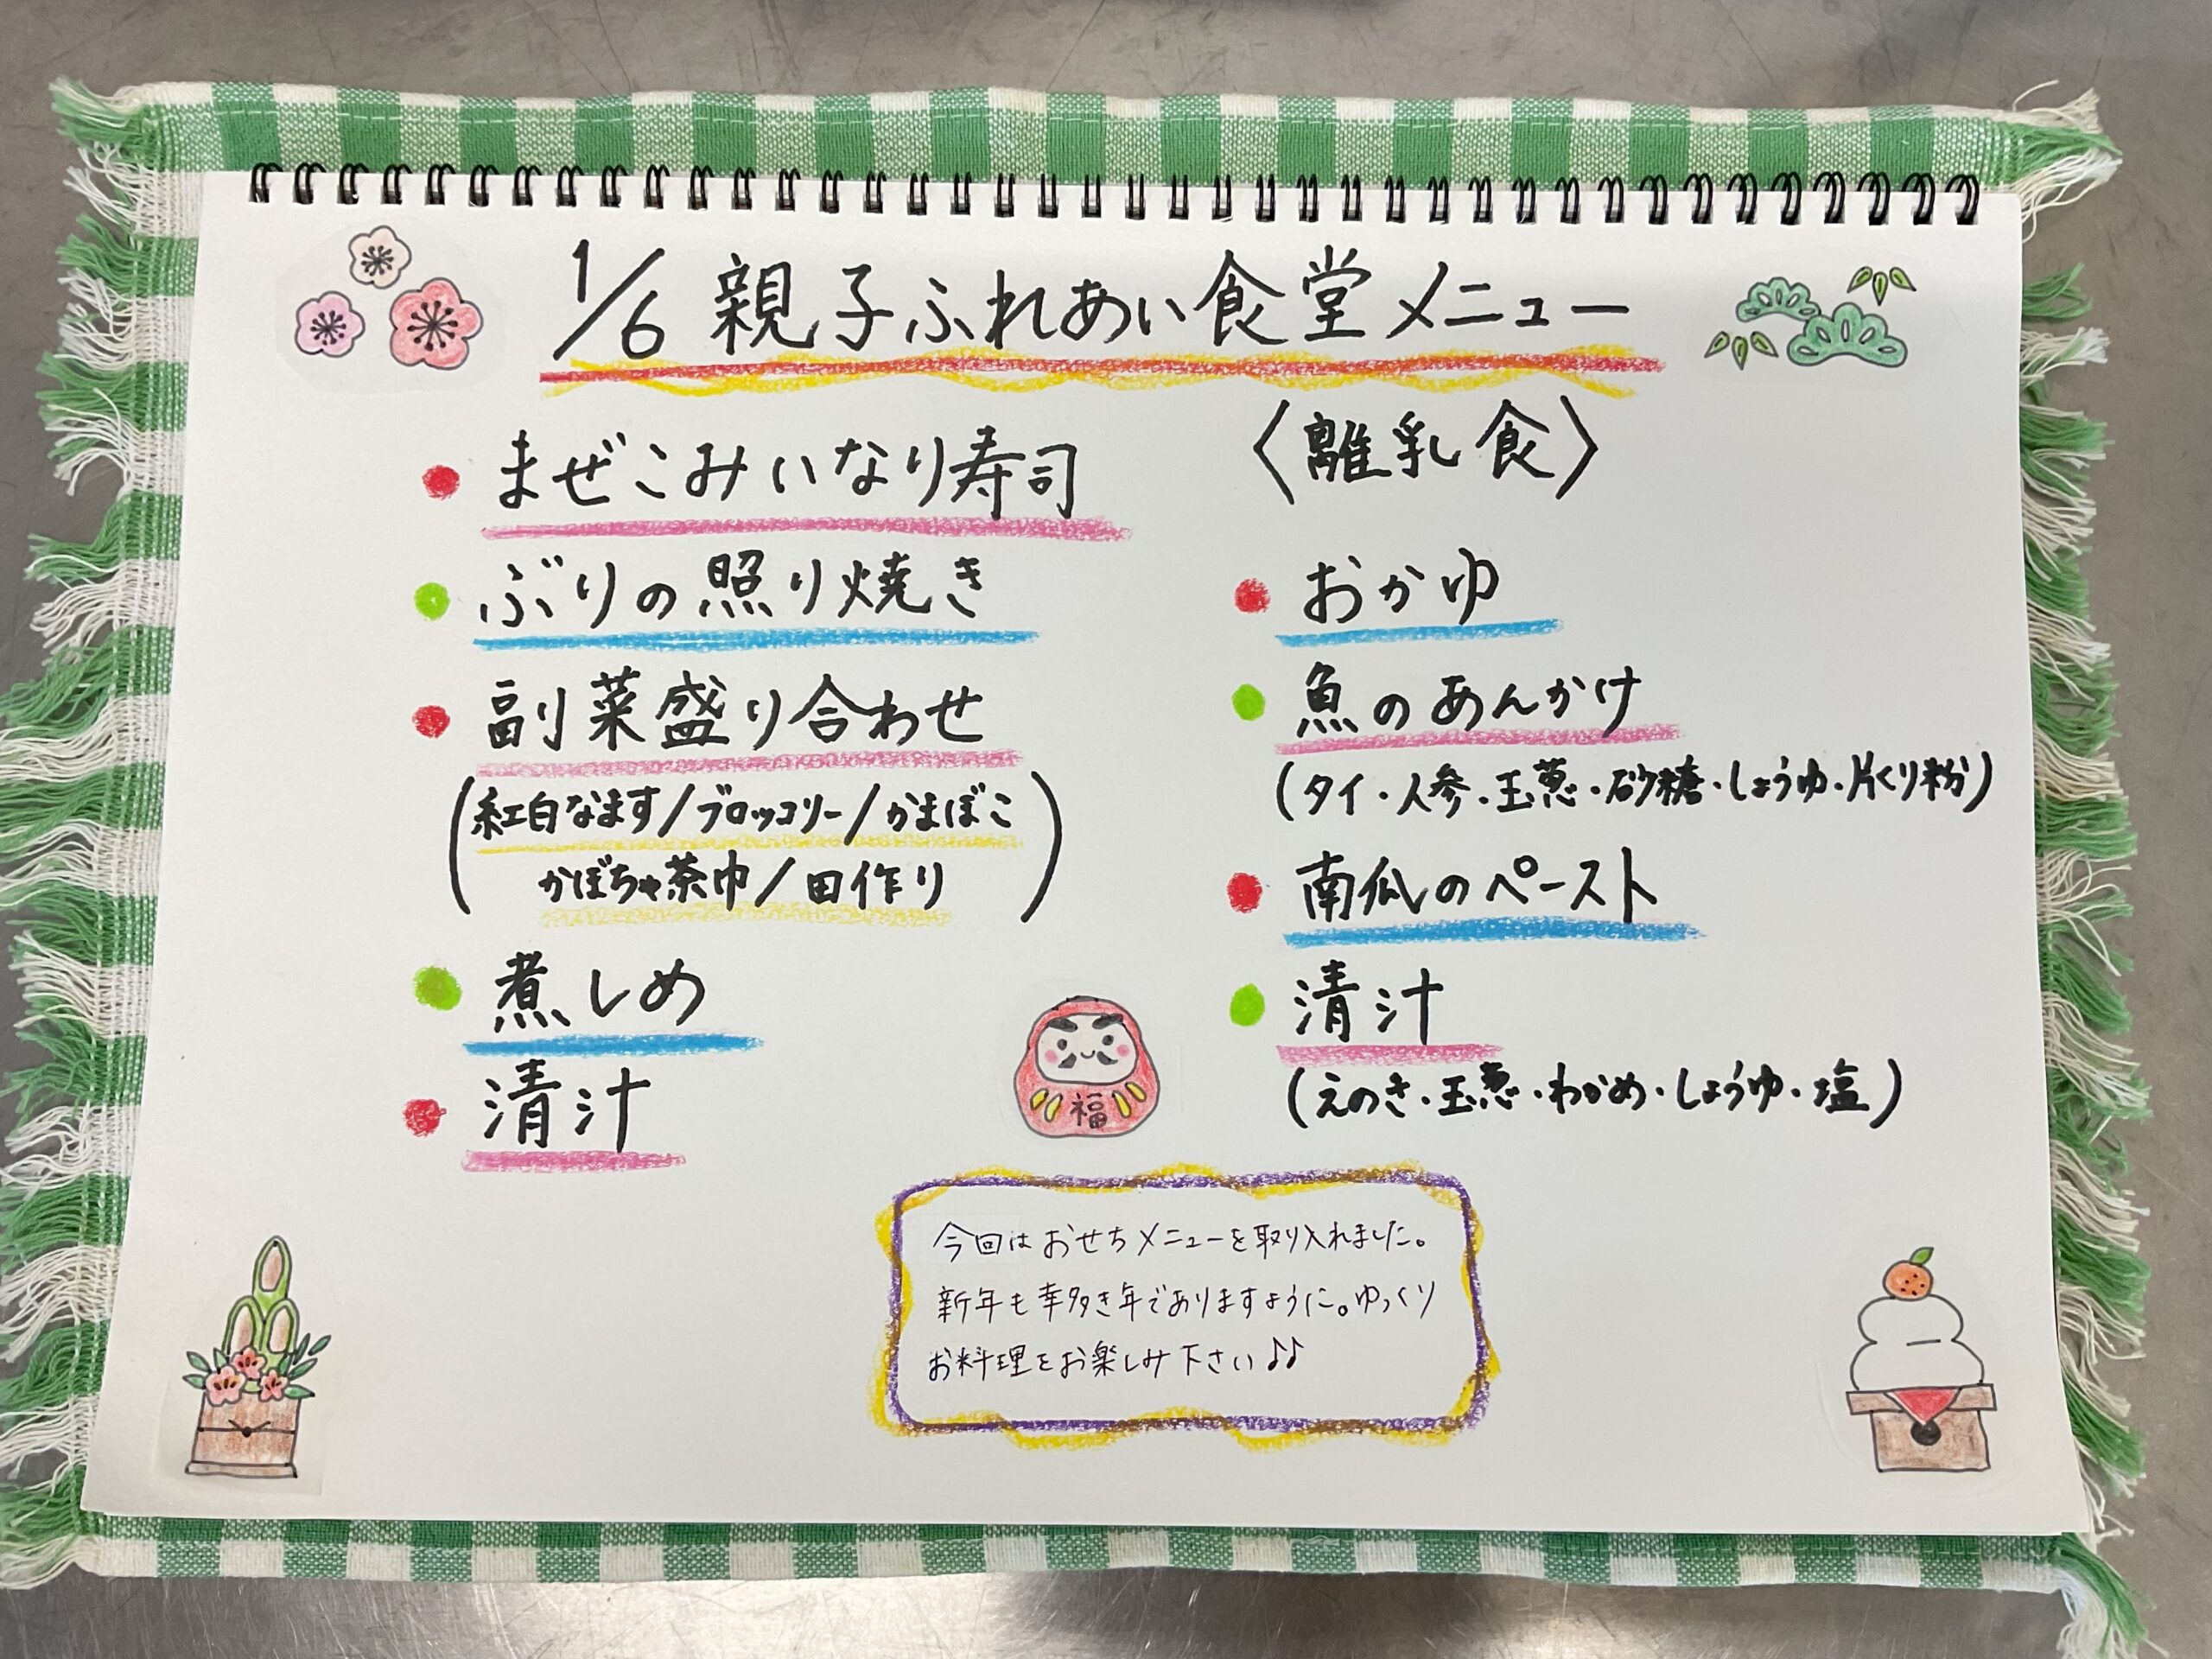 1/6 親子ふれあい食堂メニュー
・まぜこみいなり寿司
・ぶりの照り焼き
・副菜盛り合わせ
(紅白なます/ブロッコリー/かまぼこ
かぼちゃ茶巾/田作り)
・煮しめ
・清汁
〈離乳食〉
・おかゆ
・魚のあんかけ
(タイ・人参・玉葱・砂糖・しょうゆ・片くり粉)
・南瓜のペースト
・清汁
(えのき・玉葱・わかめ・しょうゆ・塩)
福
今回はおせちメニューを取り入れました。
新年も幸多き年でありますように。ゆっくり
お料理をお楽しみ下さい♪♪